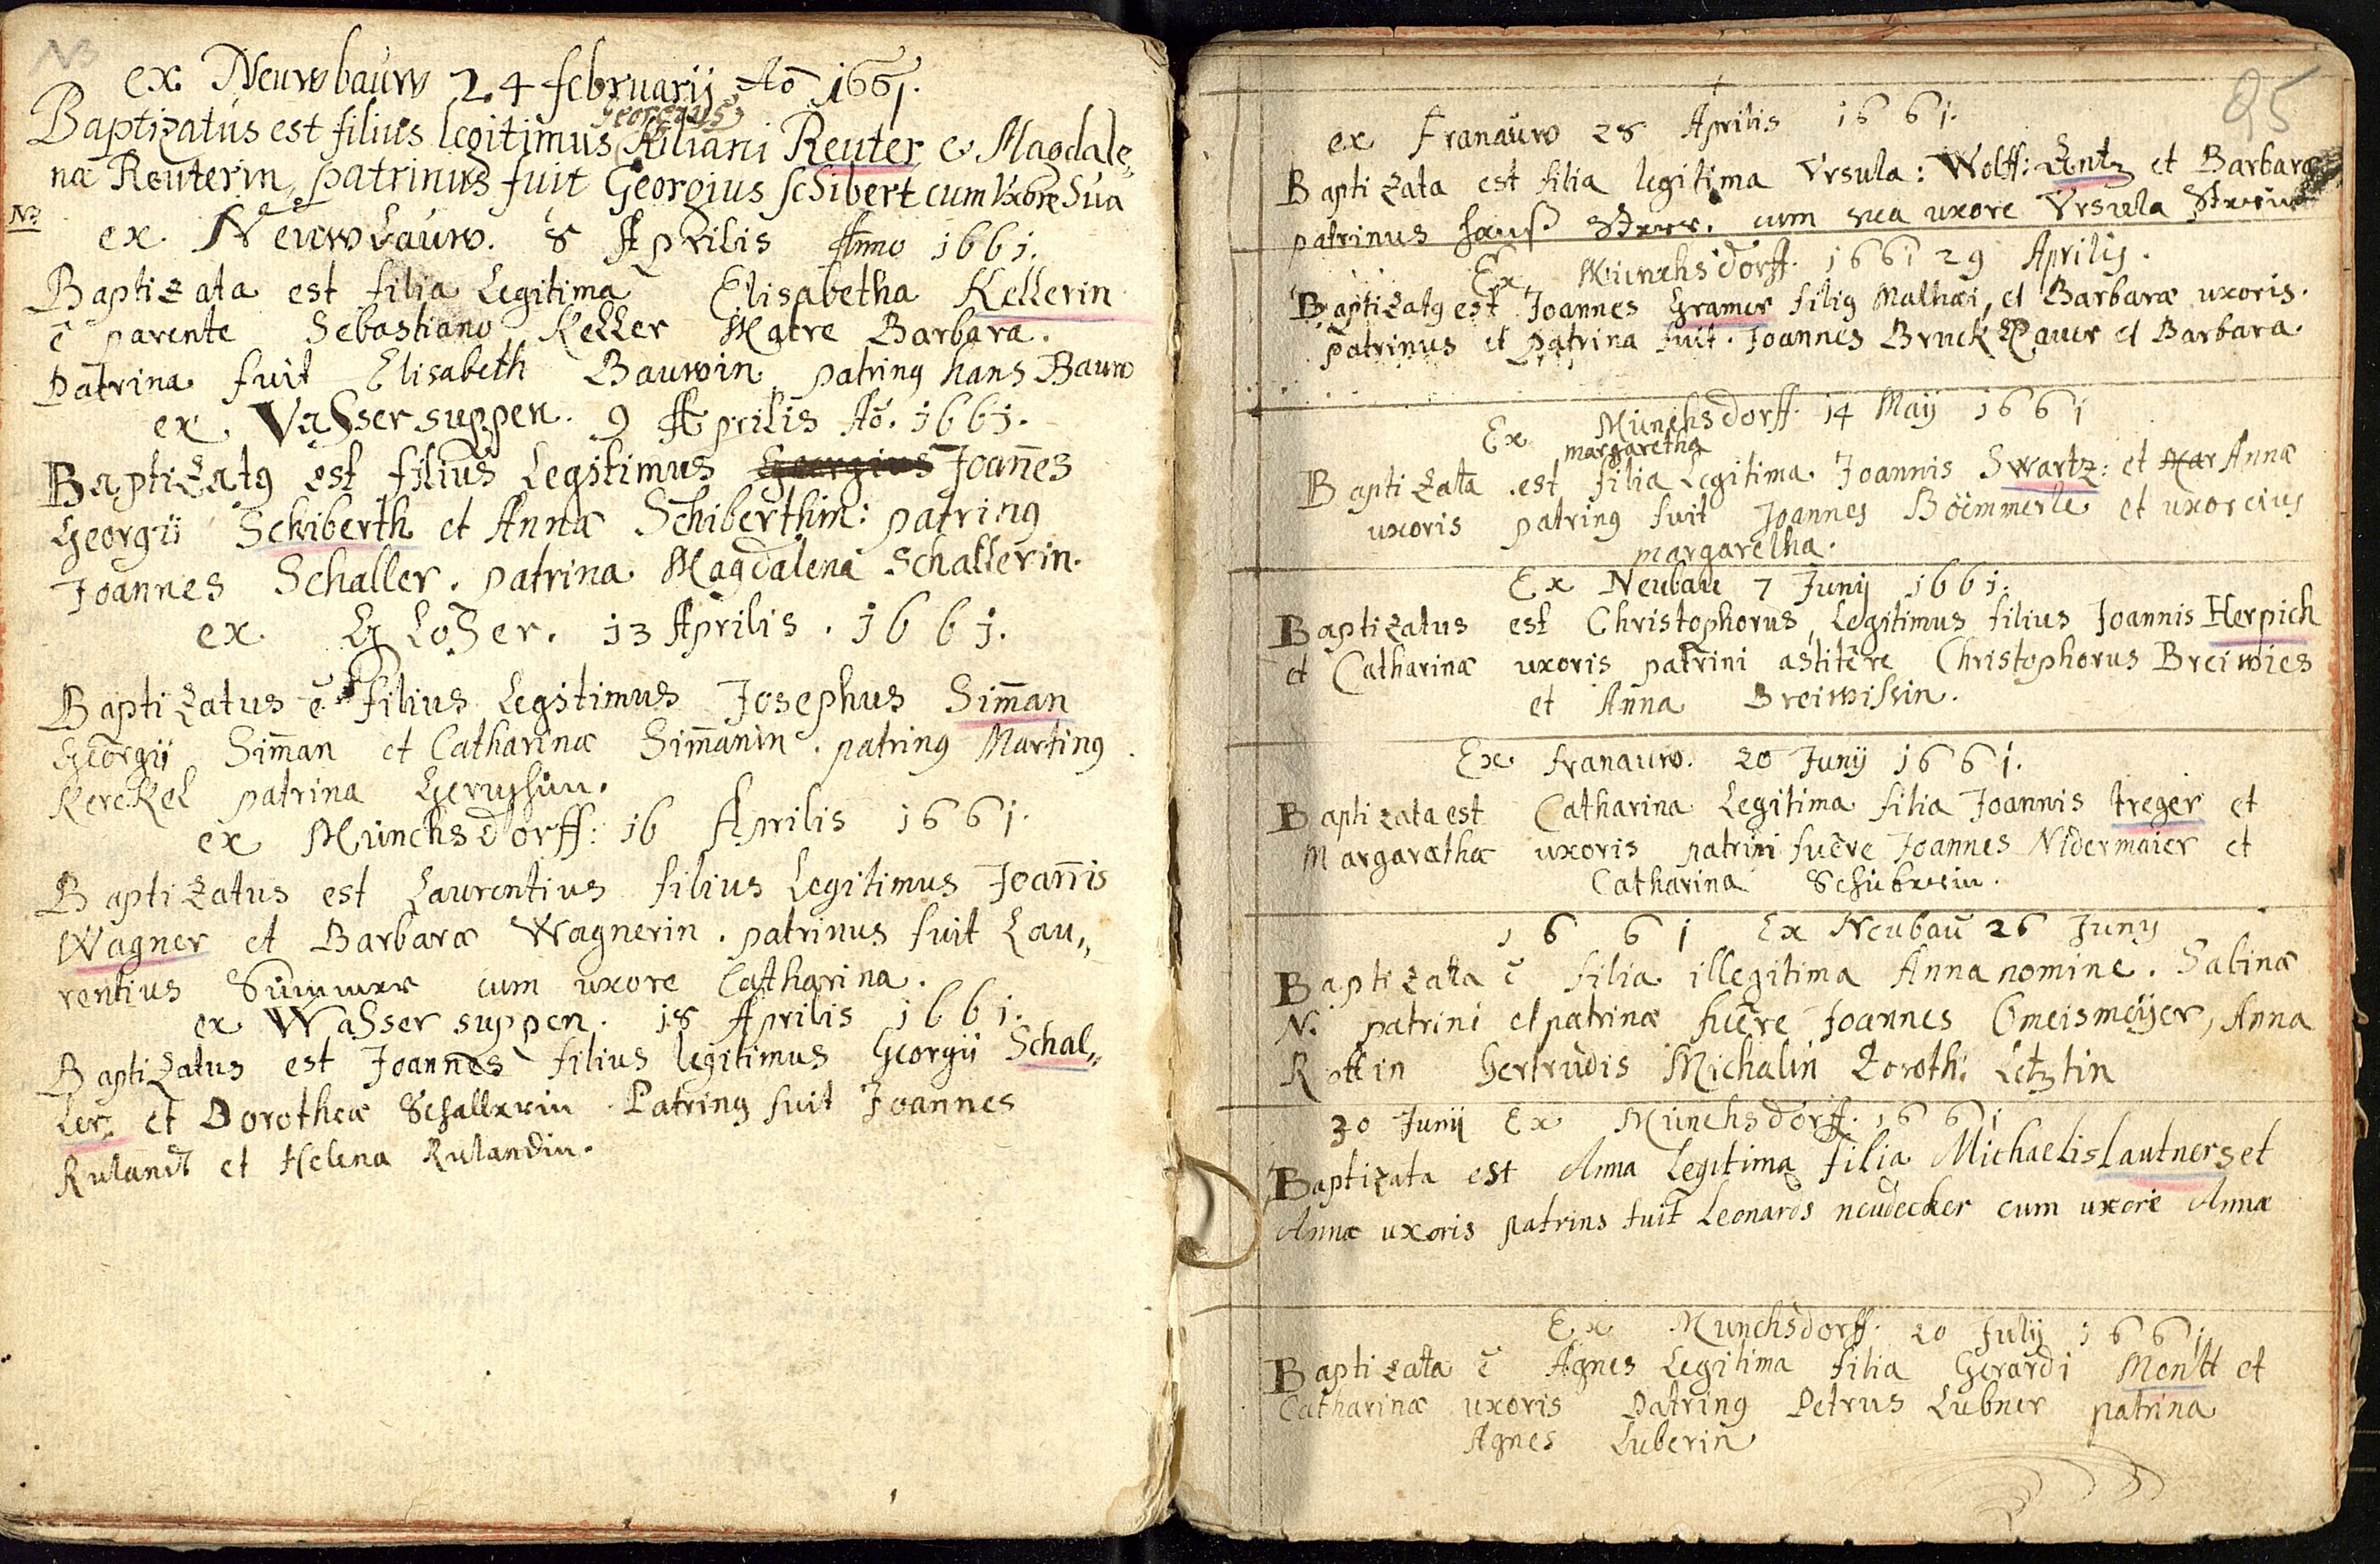 NB
ex Neuwbauw 24 februarij Aō 1661.
Georgius
Baptizatus est filius legitimus Kiliani Reuter & Magdale„
næ Reuterin, patrinus fuit Georgius schibert cum Vxore Sua
NB
ex Neuwbauw. 8 Aprilis Anno 1661.
Baptizata est filia Legitima Elisabetha Kellerin
ē parente Sebastiano Keller Matre Barbara.
Patrina fuit Elisabeth Bauwin patrinꝰ hans Bauw
ex. Vasser suppen. 9 Aprilis Aō. 1661.
Baptizatꝰ est filius Legitimus Georgius Joan̄es
Georgii Schiberth et Annæ Schiberthin: patrinꝰ
Joannes Schaller. patrina Magdalena Schallerin.
ex Gloser. 13 Aprilis. 1661.
Baptizatus ē filius Legitimus Josephus Sim̄an
Georgii Sim̄an et Catharinæ Sim̄anin. patrinꝰ Martinꝰ
Kerckel patrina
ex Münchsdorff: 16 Aprilis 1661.
Baptizatus est Laurentius filius Legitimus Joan̄is
Wagner et Barbaræ Wagnerin. patrinus fuit Lau„
rentius Summer cum uxore Catharina.
ex Wasser suppen. 18 Aprilis 1661.
Baptizatus est Joannes filius legitimus Georgii Schal„
ler et Dorotheæ Schallerin Patrinꝰ fuit Joannes
Rulandt et Helena Rulandin.
85
ex Franauw 28 Aprilis 1661.
Baptizata est filia legitima Vrsula: Wolff: Lentz et Barbaræ
patrinus hanß cum sua uxore Vrsula
Ex Münchsdorff. 1661 29 Aprilis.
Baptizatꝰ est Joannes Gramer filiꝰ Mathæi, et Barbaræ uxoris.
patrinus et patrina fuit. Joannes Bruckbauer et Barbara
Ex Münchsdorff. 14 Maij 1661
margaretha
Baptizata est filia Legitima Joannis Swartz: et Mar Annæ
uxoris patrinꝰ fuit Joannes Böemmerle et uxor eius
margaretha.
Ex Neubau 7 Junij 1661.
Baptizatus est Christophorus, Legitimus filius Joannis Herpich
et Catharinæ uxoris patrini astitēre Christophorus Breiwies
et Anna Breiwissin.
Ex franauw. 20 Junij 1661.
Baptizata est Catharina Legitima filia Joannis treger et
Margarathæ uxoris patrini fuēre Joannes Nidermaier et
Catharina Schüberin.
1661 Ex Neubau 26 Junij
Baptizata ē filia illegitima Anna nomine. Sabinæ
N. patrini et patrinæ fuēre Joannes Omeismeijer, Anna
Rottin Gertrudis Michalin Doroth: Letztin
30 Junij Ex Münchsdorff. 1661
Baptizata est Anna Legitima filia Michaelis Lautners et
Annæ uxoris patrinꝰ fuit Leonardꝰ neudecker cum uxore Anna
Ex Munchsdorff. 20 Julij 1661
Baptizata ē Agnes Legitima filia Gerardi Mentt et
Catharinæ uxoris Patrinꝰ Petrus Lubner patrina
Agnes Luberin